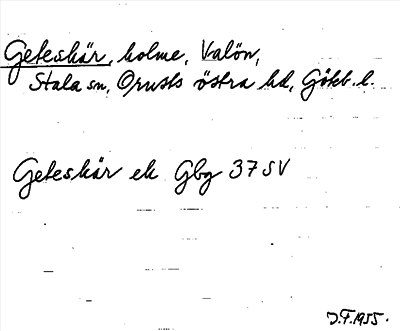 Geteskär, holme, Valön,
Stala sn, Orusts östra hd, Götb. l.
Geteskär ek Gbg 37 SV
J.F. 1955.